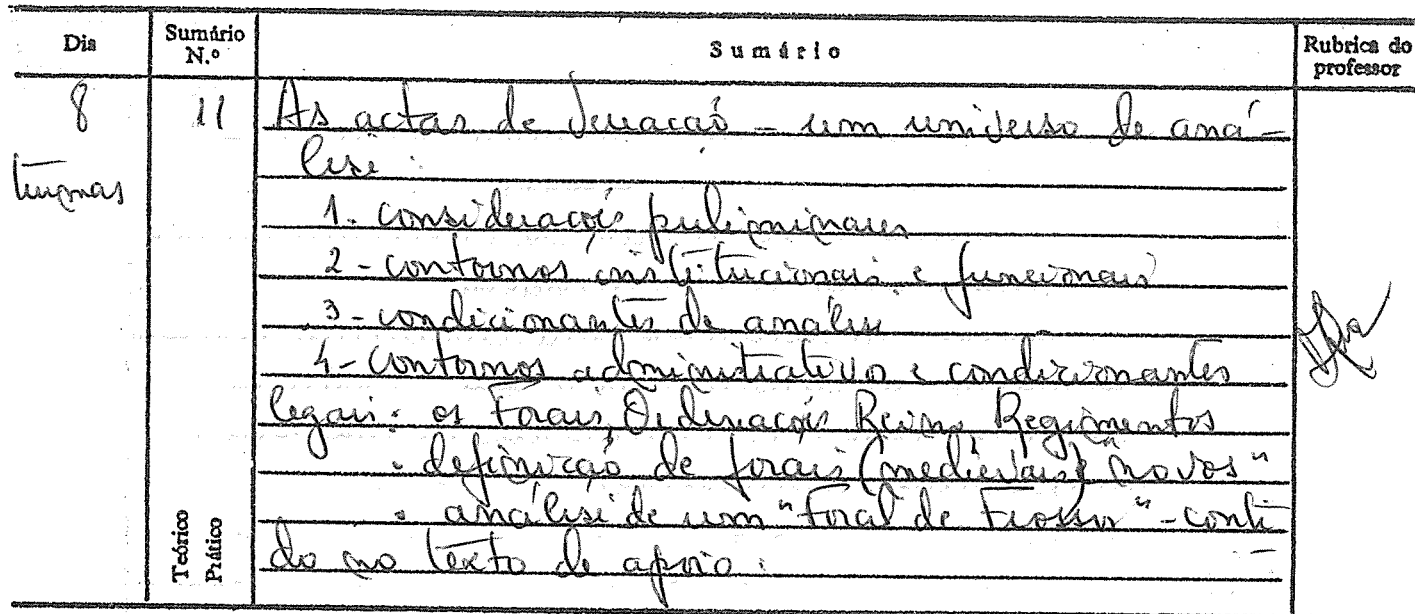 Dia Sumário N.º Sumário Rubrica do professor
8 11 As actas de Vereação - um universo de aná-
lise:
1. considerações preliminares
2 - contornos institucionais e funcionais
3 - condicionantes de analise
4 - contornos administrativo e condicionantes
legais: os Forais, Ordenações Reino Regimentos
. definição de forais (medievais) e "novos"
. análise de um "Foral de" - conti
do no texto de apoio.
Teórico
Prático